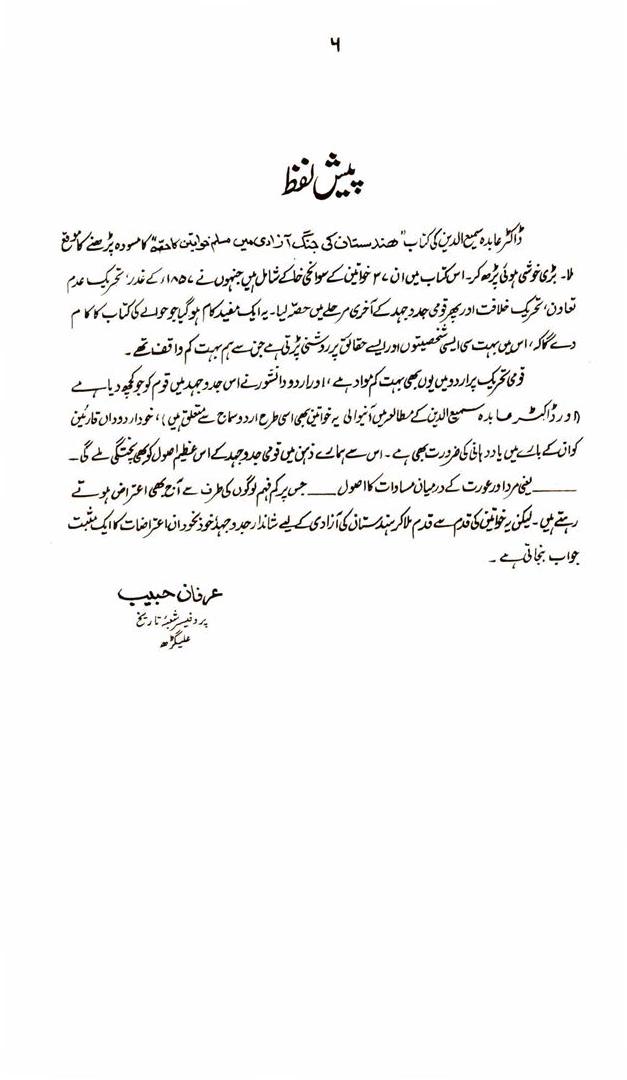 ۶
پیش لفظ
ڈاکٹر عابدہ سمیع الدین کی کتاب "ھندستان کی جنگ آزادی میں مسلم خواتین کا حصہ" کا مسودہ پڑھنے کا موقع
ملا۔ بڑی خوشی ہوئی پڑھ کر۔ اس کتاب میں ان ۲۷ خواتین کے سوانحی خاکے شامل ہیں جنہوں نے ۱۸۵۷ء کے غدر، تحریک عدم
تعاون، تحریک خلافت اور پھر قومی جدوجہد کے آخری مرحلے میں حصہ لیا۔ یہ ایک مفید کام ہوگیا جو حوالے کی کتاب کا کام
دے گا کہ، اس میں بہت سی ایسی شخصیتوں اور ایسے حقائق پر روشنی پڑتی ہے جن سے ہم بہت کم واقف تھے۔
قومی تحریک پر اردو میں یوں بھی بہت کم مواد ہے، اور اردو دانشور نے اس جدوجہد میں قوم کو جو کچھ دیا ہے
(اور ڈاکٹر عابدہ سمیع الدین کے مطالعہ میں آنیوالی یہ خواتین بھی اسی طرح اردو سماج سے متعلق ہیں)، خود اردو داں قارئین
کو ان کے بارے میں یاد دہانی کی ضرورت بھی ہے۔ اس سے ہمارے ذہن میں قومی جدوجہد کے اس عظیم اصول کو بھی پختگی ملے گی۔
____ یعنی مرد اور عورت کے درمیان مساوات کا اصول ____ جس پر کم فہم لوگوں کی طرف سے آج بھی اعتراض ہوتے
رہتے ہیں۔ لیکن یہ خواتین کی قدم سے قدم ملاکر ہندستان کی آزادی کے لیے شاندار جدوجہد خود بخود ان اعتراضات کا ایک مثبت
جواب بنجاتی ہے۔
عرفان حبیب
پروفیسر شعبۂ تاریخ
علیگڑھ